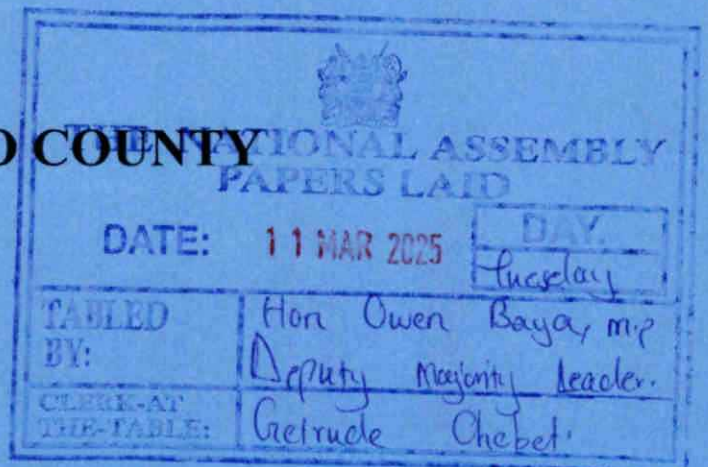 COUNTY
THE NATIONAL ASSEMBLY
PAPERS LAID
DATE: 11 MAR 2025
DAY.
Tuesday
TABLED BY:
Hon Owen Baya, M.P
Deputy Majority Leader.
CLERK-AT THE-TABLE:
Getrude Chebet